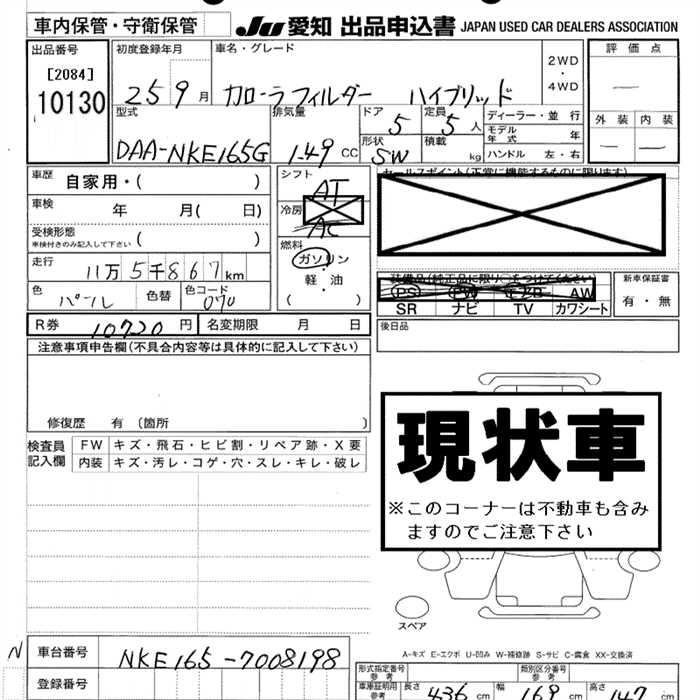 車内保管・守衛保管
JU 愛知 出品申込書 JAPAN USED CAR DEALERS ASSOCIATION
出品番号
[2084]
10130
初度登録年月
25 9 月
車名・グレード
カローラフィルダー ハイブリッド
2WD
・
4WD
評価点
—
外装 内装
— —
型式
DAA-NKE165G
排気量
1.49 CC
ドア
5
定員
5 人
形状
SW
積載
kg
ディーラー・並行
モデル年式 年
ハンドル 左・右
車歴
自家用・( )
車検
年 月( 日)
受検形態
車検付きのみ記入して下さい ( )
走行
11万5千867km
色
パール
色替
色コード
070
シフト
AT
冷房
AC
燃料
ガソリン
・
軽・油
( )
セールスポイント(正常に機能するものに限ります)
装備品(純正品に限り○をつけてください)
PS PW エアB AW
SR ナビ TV カワシート
新車保証書
有・無
R券 10720 円 名変期限 月 日
後日品
注意事項申告欄(不具合内容等は具体的に記入して下さい)
修復歴 有 (箇所 )
検査員記入欄
FW キズ・飛石・ヒビ割・リペア跡・X要
内装 キズ・汚レ・コゲ・穴・スレ・キレ・破レ
現状車
※このコーナーは不動車も含み
ますのでご注意下さい
スペア
A-キズ E-エクボ U-凹み W-補修跡 S-サビ C-腐食 XX-交換済
N 車台番号 NKE165-7008198
登録番号
形式指定番号
参考
類別区分番号
参考
車庫証明用
参考
長さ 436 cm 幅 169 cm 高さ 147 cm